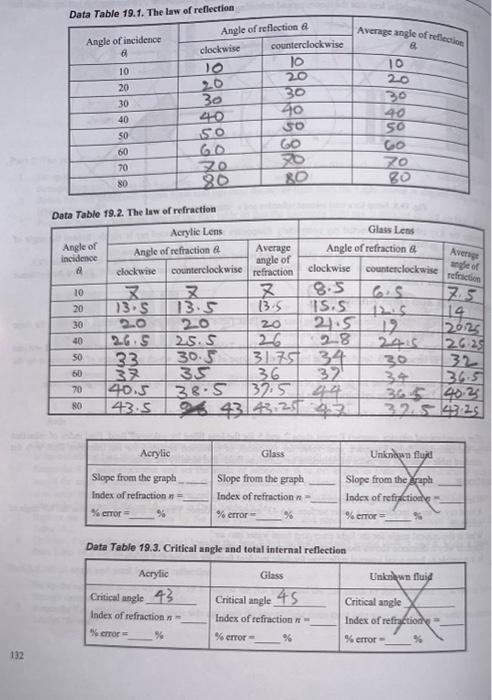 Data Table 19.1. The law of reflection
Angle of incidence θi Angle of reflection θr Average angle of reflection θr
clockwise counterclockwise
10 10 10 10
20 20 20 20
30 30 30 30
40 40 40 40
50 50 50 50
60 60 60 60
70 70 70 70
80 80 80 80
Data Table 19.2. The law of refraction
Acrylic Lens Glass Lens
Angle of incidence Angle of refraction Average angle of refraction Angle of refraction Average angle of refraction
clockwise counterclockwise clockwise counterclockwise
10 7 7 7 8.5 6.5 7.5
20 13.5 13.5 13.5 15.5 12.5 14
30 20 20 20 21.5 19 20.25
40 26.5 25.5 26 28 24.5 26.25
50 33 30.5 31.75 34 30 32
60 37 35 36 39 34 36.5
70 40.5 38.5 39.5 44 36.5 40.25
80 43.5 43 43.25 47 39.5 43.25
Acrylic Glass Unknown fluid
Slope from the graph Slope from the graph Slope from the graph
Index of refraction n = Index of refraction n = Index of refraction n =
% error = % % error = % % error = %
Data Table 19.3. Critical angle and total internal reflection
Acrylic Glass Unknown fluid
Critical angle 43 Critical angle 45 Critical angle
Index of refraction n = Index of refraction n = Index of refraction n =
% error = % % error = % % error = %
132